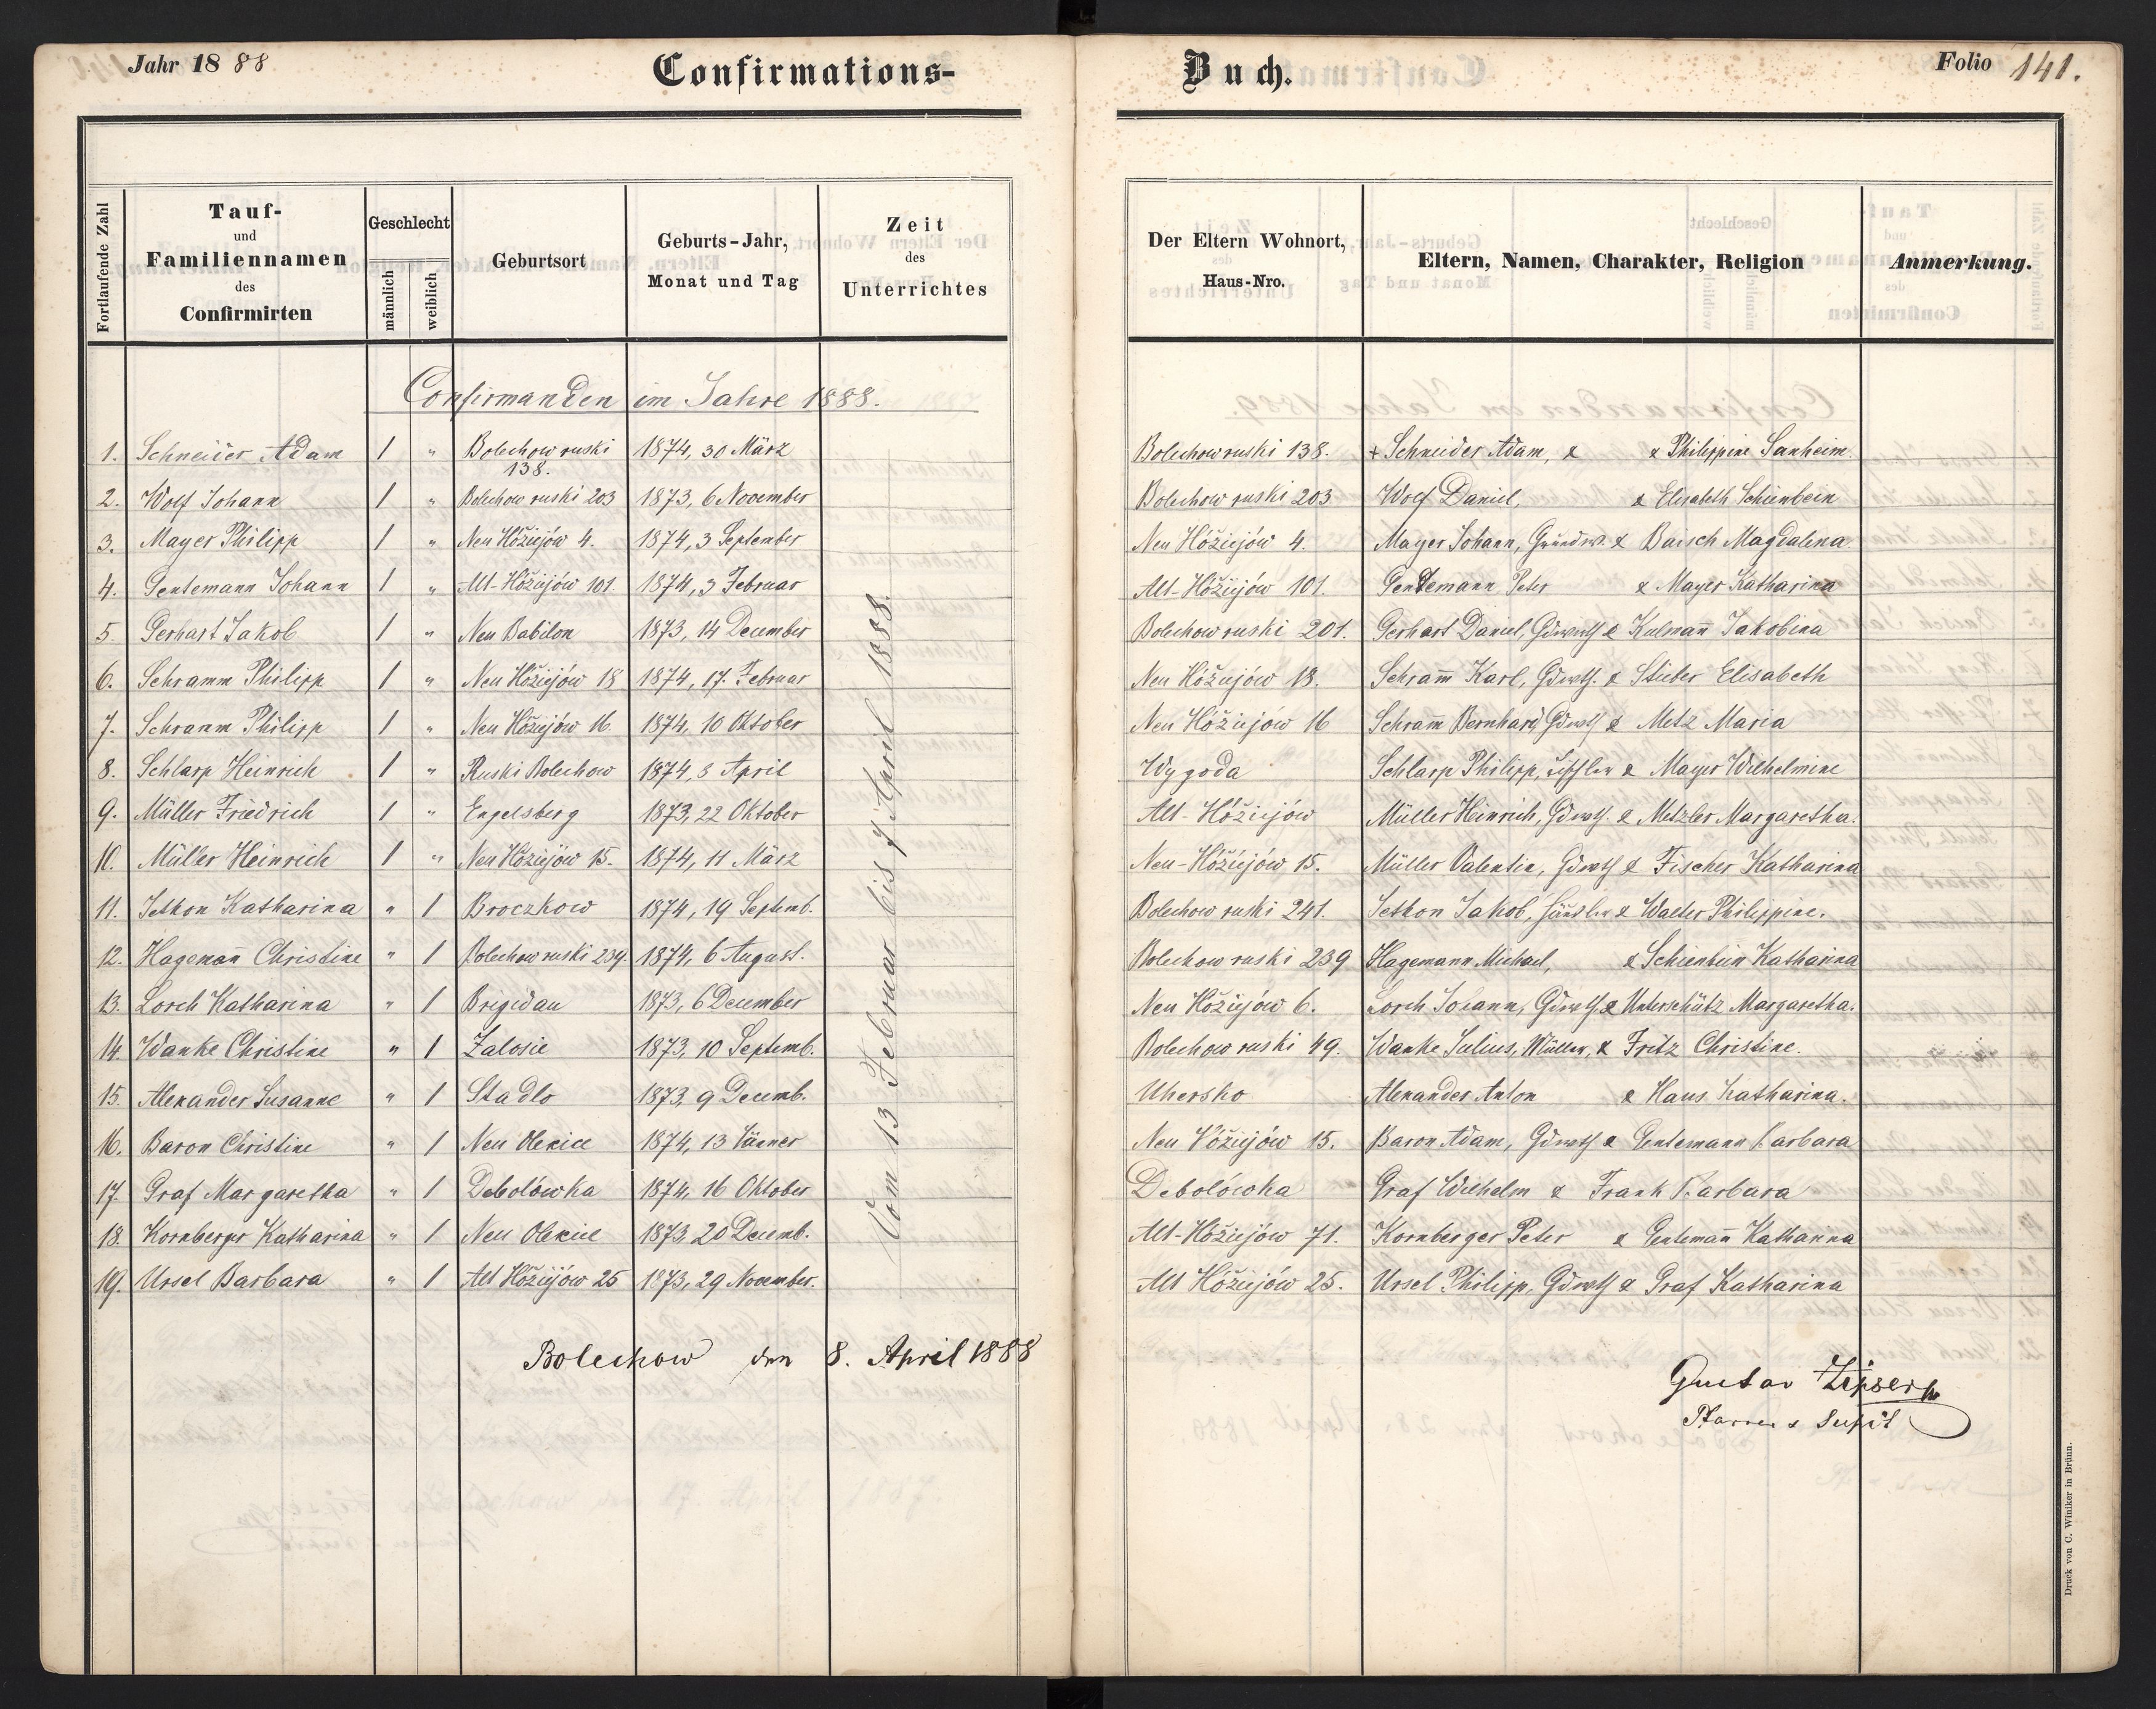 Jahr 1888 Confirmations- Buch. Folio 141.
Fortlaufende Zahl
Tauf-
und
Familiennamen
des
Confirmirten
Geschlecht
männlich
weiblich
Geburtsort
Geburts-Jahr,
Monat und Tag
Zeit
des
Unterrichtes
Der Eltern Wohnort,
Haus-Nro.
Eltern, Namen, Charakter, Religion
Anmerkung.
Confirmanden im Jahre 1888.
1. Schneider Adam 1 " Bolechow ruski 138. 1874, 30 März Bolechow ruski 138. + Schneider Adam, & & Philippine Sanheim.
2. Wolf Johann 1 " Bolechow ruski 203 1873, 6 November Bolechow ruski 203 Wolf Daniel, & Elisabeth Schienbein
3. Mayer Philipp 1 " Neu Hóžiejów 4. 1874, 3 September Neu Hóžiejów 4. Mayer Johann, Grundw. & Baisch Magdalena.
4. Gentemann Johann 1 " Alt-Hóžiejów 101. 1874, 3 Februar Alt-Hóžiejów 101. Gentemann Peter & Mayer Katharina
5. Gerhart Jakob 1 " Neu Babilon 1873, 14 December Bolechow ruski 201. Gerhart Daniel, Gdwrth & Kulmañ Jakobina
6. Schramm Philipp 1 " Neu Hóžiejów 18 1874, 17. Februar Neu Hóžiejów 18. Schram̄ Karl, Gdwth. & Stieber Elisabeth
7. Schramm Philipp 1 " Neu Hóžiejów 16 1874, 10 Oktober Neu Hóžiejów 16 Schram̄ Bernhard, Gdwth & Metz Maria
8. Schlarp Heinrich 1 " Ruski Bolechow 1874, 8 April Wygoda Schlarp Philipp, Tischler & Mayer Wilhelmine
9. Müller Friedrich 1 " Engelsberg 1873, 22 Oktober Alt-Hóžiejów Müller Heinrich, Gdwth. & Metzler Margaretha.
10. Müller Heinrich 1 " Neu Hóžiejów 15. 1874, 11 März Neu-Hóžiejów 15. Müller Valentin, Gdwth & Fischer Katharina
11. Jethon Katharina " 1 Broczkow 1874, 19 Septemb. Bolechow ruski 241. Jethon Jakob, & Walter Philippine.
12. Hagemañ Christine " 1 Bolechow ruski 239. 1874, 6 August. Bolechow ruski 239 Hagemann Michael, & Schienbein Katharina
13. Lorch Katharina " 1 Brigidau 1873, 6 December Neu Hóžiejów 6. Lorch Johann, Gdwth. & Unterschütz Margaretha.
14. Wanke Christine " 1 Zalosie 1873, 10 Septemb. Bolechow ruski 49. Wanke Julius, Müller, & Fritz Christine.
15. Alexander Susanne " 1 Stadlo 1873, 9 Decemb. Uhersko Alexander Anton & Haus Katharina.
16. Baron Christine " 1 Neu Olexice 1874, 13 Jänner Neu Hóžiejów 15. Baron Adam, Gdwth & Gentemann Barbara
17. Graf Margaretha " 1 Debolówka 1874, 16 Oktober Debolówka Graf Wilhelm & Frank Barbara
18. Kornberger Katharina " 1 Neu Olexice 1873, 20 Decemb. Alt-Hóžiejów 71. Kornberger Peter & Gentemañ Katharina
19. Ursel Barbara " 1 Alt Hóžiejów 25 1873, 29 November. Alt Hóžiejów 25. Ursel Philipp, Gdwth & Graf Katharina
Vom 13 Februar bis 7 April 1888.
Bolechow den 8. April 1888
Gustav Zipser
Pfarrer & Supdt
Druck von C. Winiker in Brünn.